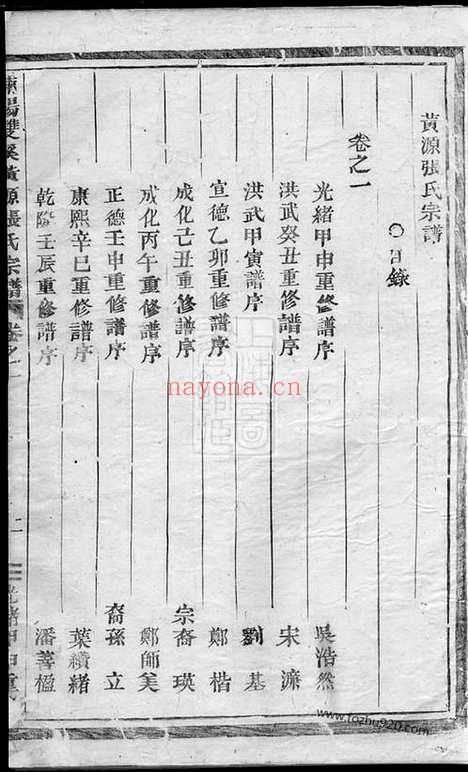 黃源張氏宗譜
目錄
卷之一
光緒甲申重修譜序 吳浩然
洪武癸丑重修譜序 宋濂
洪武甲寅譜序 劉基
宣德乙卯重修譜序 鄭楷
成化己丑重修譜序 宗裔瑛
成化丙午重修譜序 鄭師美
正德壬申重修譜序 裔孫立
康熙辛巳重修譜序 葉纘緒
乾隆壬辰重修譜序 潘善楹
陽雙溪黃源張氏宗譜 卷之一 二 光緒甲申重
nayona.cn
www.tozhu920.com